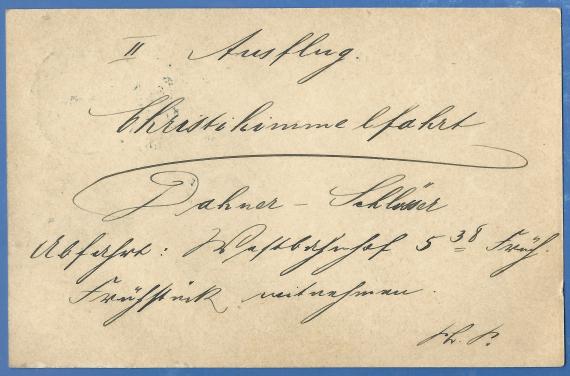 II Ausflug.
Christihimmelfahrt
Dahner - Schlösser
Abfahrt: Westbahnhof 5 38 Früh.
Frühstück mitnehmen.